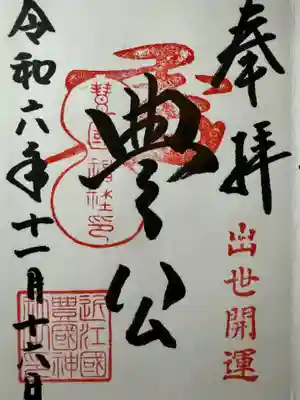 奉拝
出世開運
豊公
豊国神社印
近江國
豊國神
社之印
令和六年十一月十六日